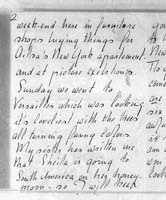 2
week-end here in furniture
shops buying things for
New York apartement
and at picture exhibitions.
Sunday we went to
Versailles which was looking
it's loveliest with the trees
all turning funny colors
My sister has written me
that Sheila is going to
South America on her honey-
moon - so I will keep